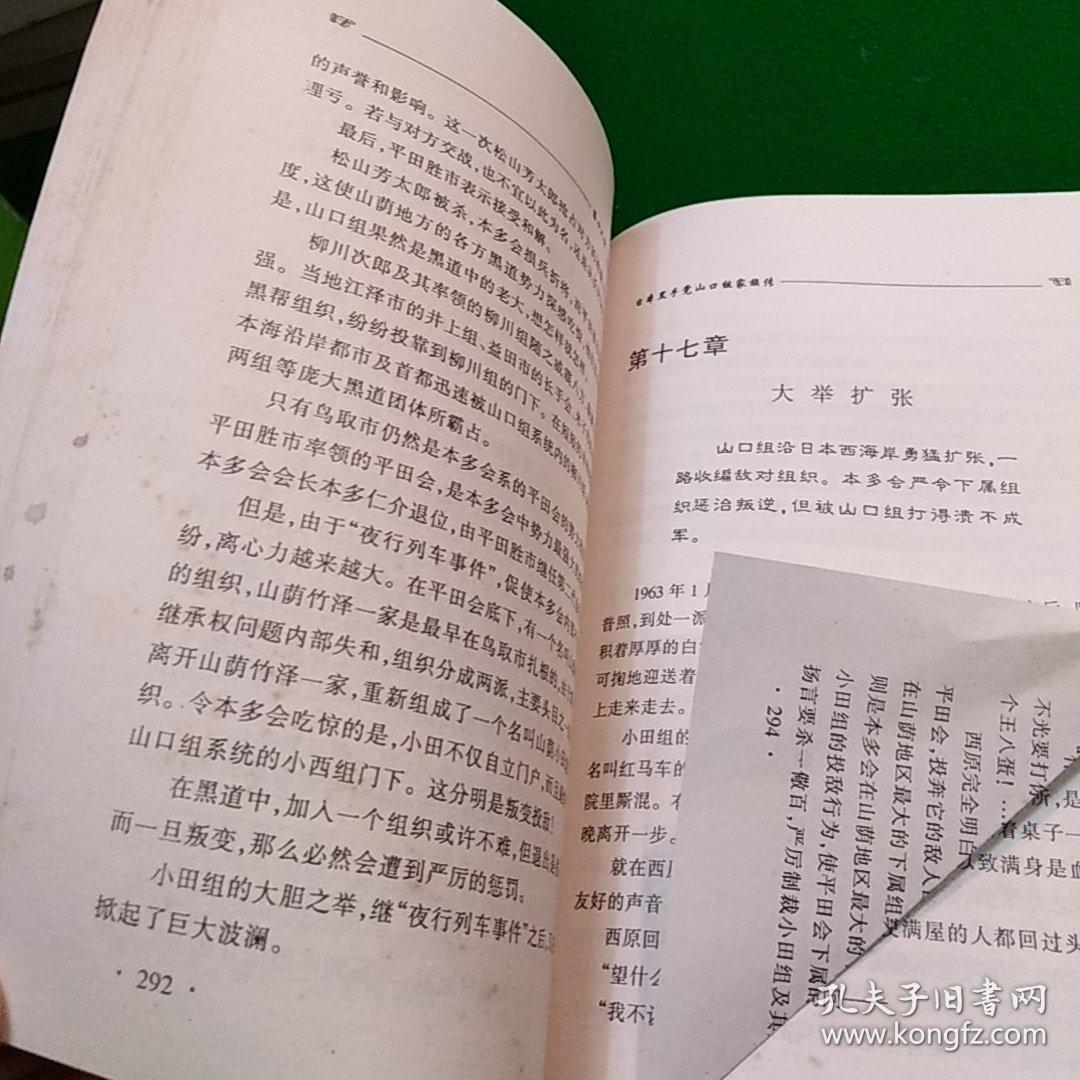 的声誉和影响。这一次松山芳太郎抢占
理亏。若与对方交战,也不宜以此为名,还是
最后,平田胜市表示接受和解。
松山芳太郎被杀,本多会损兵折将,
度,这使山荫地方的各方黑道势力深感
是,山口组果然是黑道中的老大,想怎样就怎样
柳川次郎及其率领的柳川组随之威震八方
强。当地江泽市的井上组、益田市的长手会
黑帮组织,纷纷投靠到柳川组的门下。在短短的
本海沿岸都市及首都迅速被山口组系统内的柳川
两组等庞大黑道团体所霸占。
只有鸟取市仍然是本多会系的平田会的势力
平田胜市率领的平田会,是本多会中势力最强大
本多会会长本多仁介退位,由平田胜市继任第二
但是,由于“夜行列车事件”,促使本多会内部
纷,离心力越来越大。在平田会底下,有一个名叫
的组织,山荫竹泽一家是最早在鸟取市扎根的
继承权问题内部失和,组织分成两派,主要头目之一
离开山荫竹泽一家,重新组成了一个名叫山荫小田
织。令本多会吃惊的是,小田不仅自立门户,而且
山口组系统的小西组门下。这分明是叛变投敌!
在黑道中,加入一个组织或许不难,但退出
而一旦叛变,那么必然会遭到严厉的惩罚。
小田组的大胆之举,继“夜行列车事件”之后,又
掀起了巨大波澜。
· 292 ·
日本黑手党山口组家族传
第十七章
大举扩张
山口组沿日本西海岸勇猛扩张,一
路收编敌对组织。本多会严令下属组
织惩治叛逆,但被山口组打得溃不成
军。
1963年1月
普照,到处一派
积着厚厚的白
可掬地迎送着
上走来走去。
小田组的
名叫红马车的
院里厮混。
晚离开一步。
就在西
友好的声音
西原回
“望什么
“我不
着桌子
致满身是血
满屋的人都回过头
不光要打
个王八蛋!…
西原完全明白
平田会,投奔它的敌人
在山荫地区最大的下属组织
则是本多会在山荫地区最大的
小田组的投敌行为,使平田会下属的
扬言要杀一儆百,严厉制裁小田组及其
· 294 ·
孔夫子旧书网
www.kongfz.com